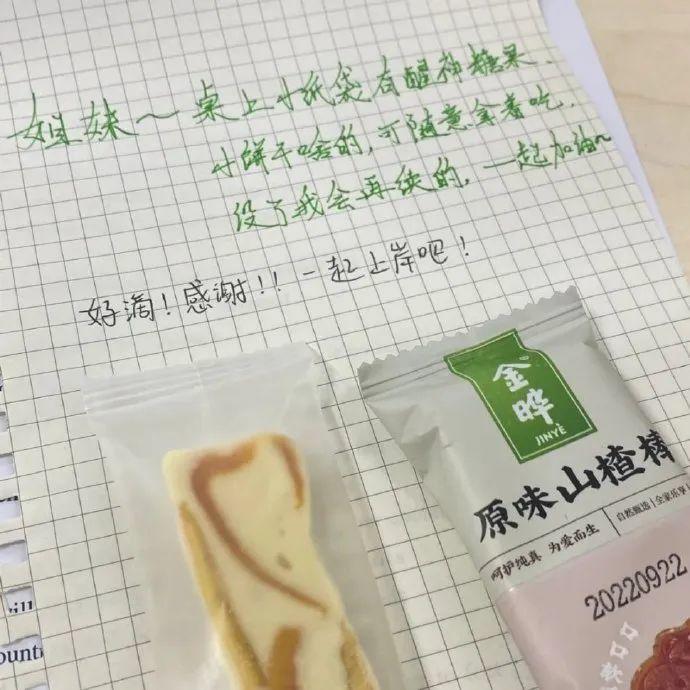 姐妹~桌上小纸袋有醒神糖果、
小饼干啥的,可随意拿着吃.
没了我会再续的,一起加油~
好滴!感谢!!一起上岸吧!
金晔
JINYE
原味山楂棒
呵护纯真 为爱而生
自然甄选|全家乐享
20220922
口口软
ill
ount